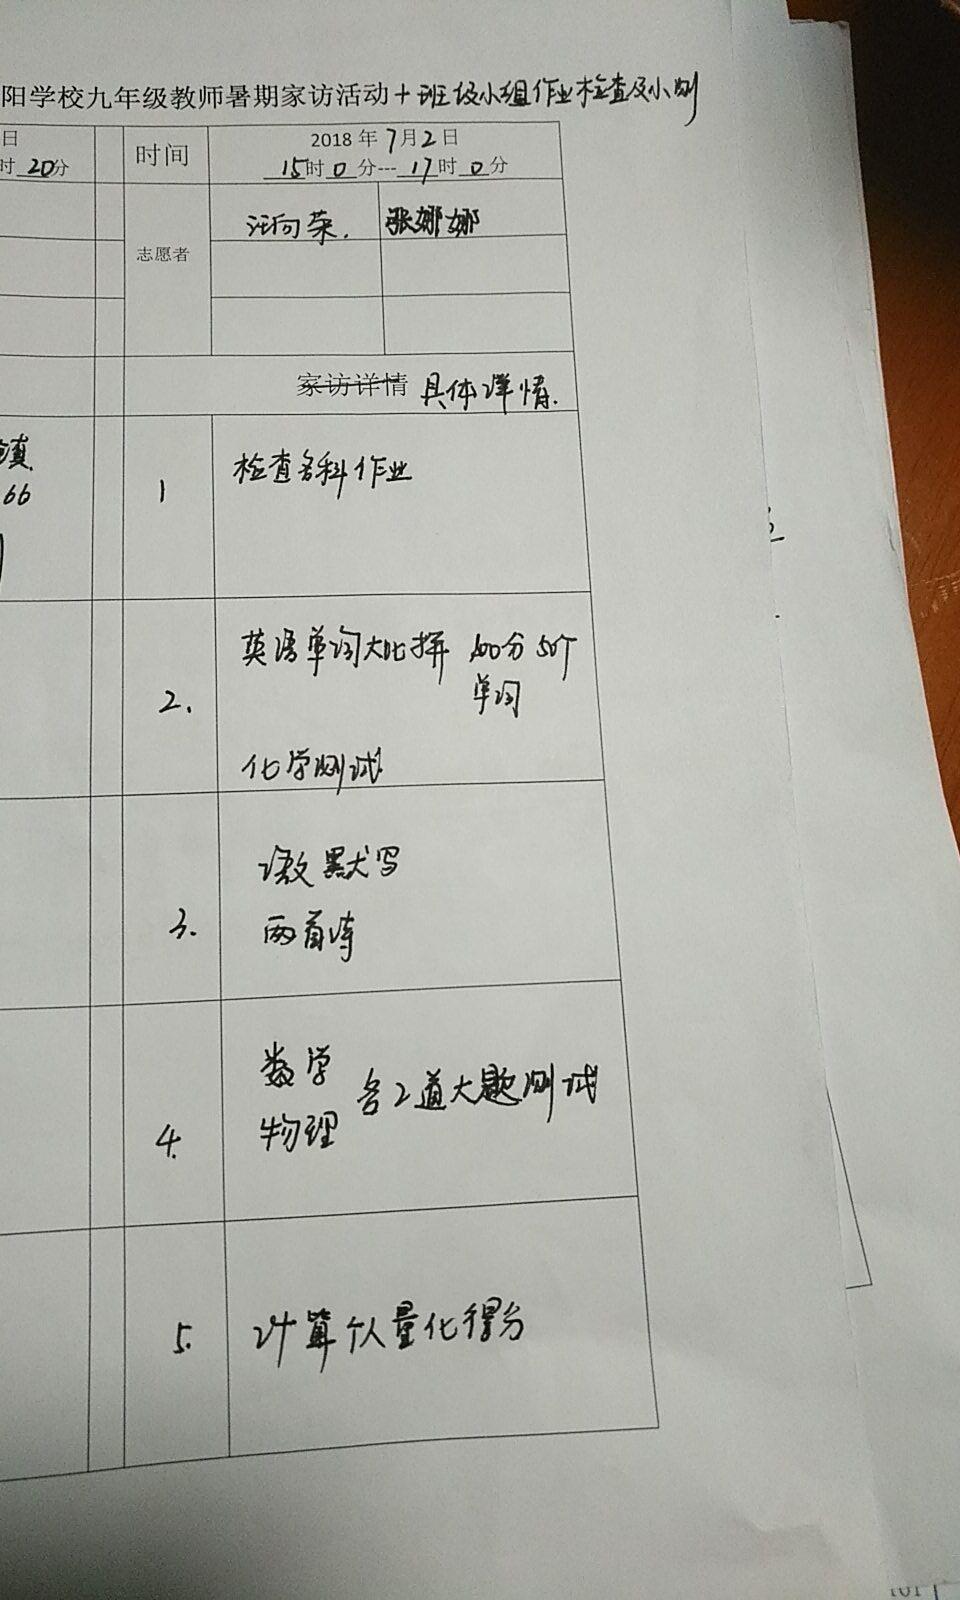 阳学校九年级教师暑期家访活动+班级小组作业检查及小测
日
时20分
时间
2018年7月2日
15时0分---17时0分
志愿者
汪向荣. 张娜娜
家访详情 具体详情.
镇.
66
1 检查各科作业
英语单词大比拼 100分50个
单词
2.
化学测试
语文默写
3. 两首诗
数学
物理 各2道大题测试
4.
5. 计算个人量化得分